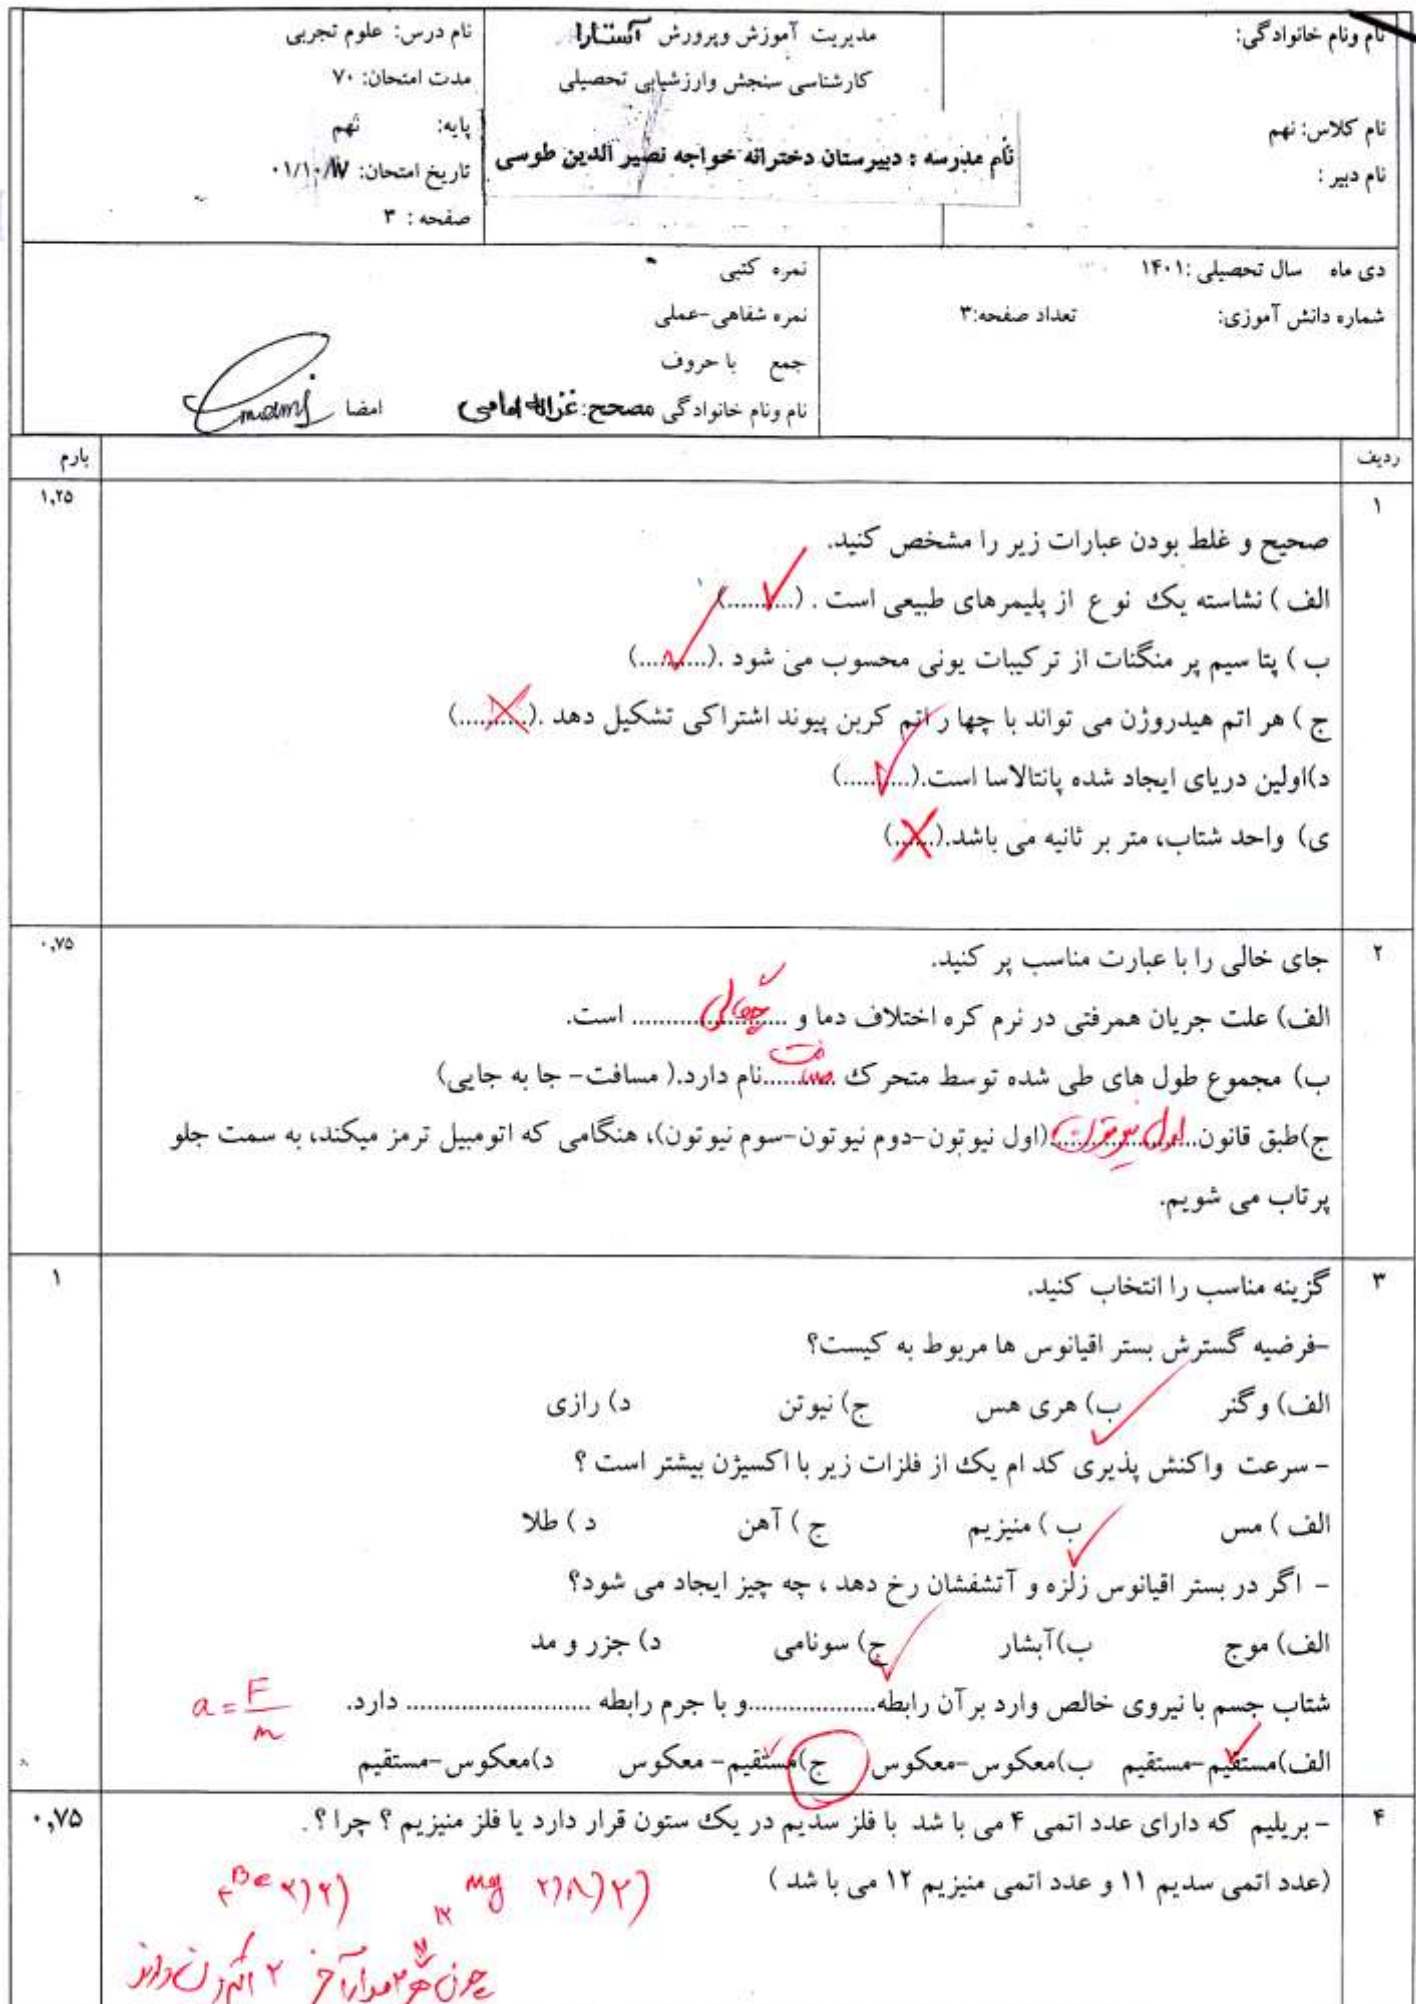 نام ونام خانوادگی:
نام کلاس: نهم
نام دبیر :
مدیریت آموزش وپرورش آستارا
کارشناسی سنجش وارزشیابی تحصیلی
نام مدرسه : دبیرستان دخترانه خواجه نصیر الدین طوسی
نام درس: علوم تجربی
مدت امتحان: ۷۰
پایه: نهم
تاریخ امتحان: ۰۱/۱۰/۱۷
صفحه : ۳
دی ماه سال تحصیلی :۱۴۰۱
شماره دانش آموزی: تعداد صفحه:۳
نمره کتبی
نمره شفاهی-عملی
جمع با حروف
نام ونام خانوادگی مصحح: غزاله امامی امضا Emami
ردیف بارم
۱ ۱,۲۵
صحیح و غلط بودن عبارات زیر را مشخص کنید.
الف ) نشاسته یک نوع از پلیمرهای طبیعی است . (..........)
ب ) پتا سیم پر منگنات از ترکیبات یونی محسوب می شود .(..........)
ج ) هر اتم هیدروژن می تواند با چها ر اتم کربن پیوند اشتراکی تشکیل دهد .(..........)
د)اولین دریای ایجاد شده پانتالاسا است.(..........)
ی) واحد شتاب، متر بر ثانیه می باشد.(.......)
۲ جای خالی را با عبارت مناسب پر کنید. ۰,۷۵
الف) علت جریان همرفتی در نرم کره اختلاف دما و ........چگالی........ است.
ب) مجموع طول های طی شده توسط متحرک ....مسافت....نام دارد.( مسافت- جا به جایی)
ج)طبق قانون....اول نیوتون....(اول نیوتون-دوم نیوتون-سوم نیوتون)، هنگامی که اتومبیل ترمز میکند، به سمت جلو
پرتاب می شویم.
۳ گزینه مناسب را انتخاب کنید. ۱
-فرضیه گسترش بستر اقیانوس ها مربوط به کیست؟
الف) وگنر ب) هری هس ج) نیوتن د) رازی
- سرعت واکنش پذیری کد ام یک از فلزات زیر با اکسیژن بیشتر است ؟
الف ) مس ب ) منیزیم ج ) آهن د ) طلا
- اگر در بستر اقیانوس زلزه و آتشفشان رخ دهد ، چه چیز ایجاد می شود؟
الف) موج ب)آبشار ج) سونامی د) جزر و مد
شتاب جسم با نیروی خالص وارد برآن رابطه..................و با جرم رابطه .......................... دارد. a = F/m
الف)مستقیم-مستقیم ب)معکوس-معکوس ج)مستقیم- معکوس د)معکوس-مستقیم
۴ - بریلیم که دارای عدد اتمی ۴ می با شد با فلز سدیم در یک ستون قرار دارد یا فلز منیزیم ؟ چرا ؟ ۰,۷۵
(عدد اتمی سدیم ۱۱ و عدد اتمی منیزیم ۱۲ می با شد )
۴Be ۲)۲) ۱۲Mg ۲)۸)۲)
چون هر ۲ مدار آخر ۲ الکترون دارند